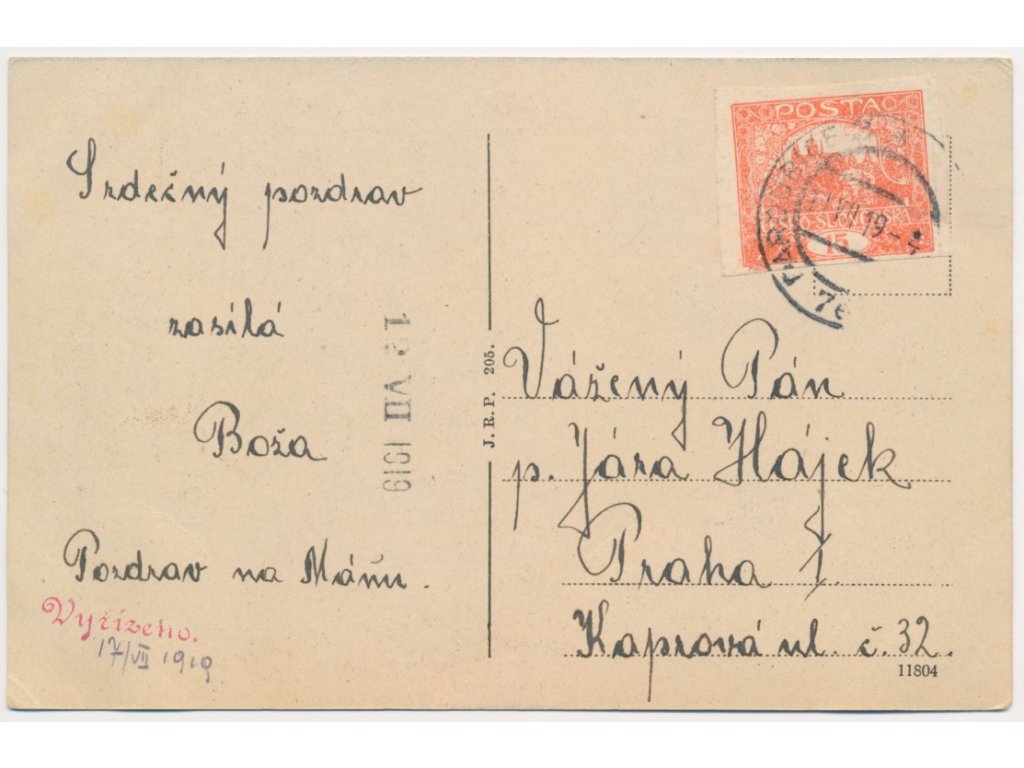 Srdečný pozdrav
zasílá
Boža
Pozdrav na Máňu.
Vyřízeno.
17/VII 1919
12 VII 1919
J. R. P. 205.
POSTA
15
PARDUBICE
VII 19
Vážený Pán
p. Jára Hájek
Praha I.
Kaprová ul. č. 32.
11804